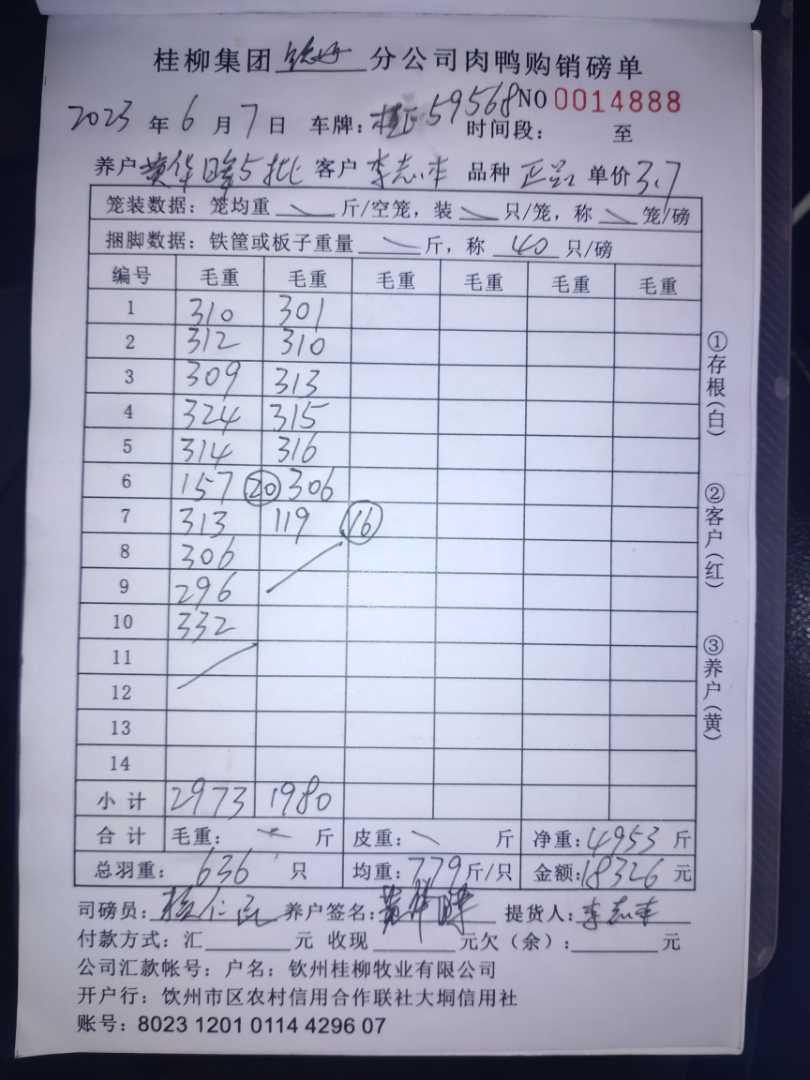 桂柳集团 分公司肉鸭购销磅单
2023 年 6 月 7 日 车牌: 59568 NO 0014888
时间段: 至
养户 黄华 5批 客户 李志 品种 单价 3.7
笼装数据: 笼均重 斤/空笼, 装 只/笼, 称 笼/磅
捆脚数据: 铁筐或板子重量 斤, 称 40 只/磅
编号 毛重 毛重 毛重 毛重 毛重 毛重
1 310 301
2 312 310
3 309 313
4 324 315
5 314 316
6 157 20 306
7 313 119 16
8 306
9 296
10 332
11
12
13
14
小计 2973 1980
合计 毛重: 斤 皮重: 斤 净重: 4953 斤
总羽重: 636 只 均重: 7.79 斤/只 金额: 18326 元
司磅员: 养户签名: 黄华 提货人: 李志
付款方式: 汇 元 收现 元欠(余): 元
公司汇款帐号: 户名: 钦州桂柳牧业有限公司
开户行: 饮州市区农村信用合作联社大垌信用社
账号: 8023 1201 0114 4296 07
①存根(白)
②客户(红)
③养户(黄)